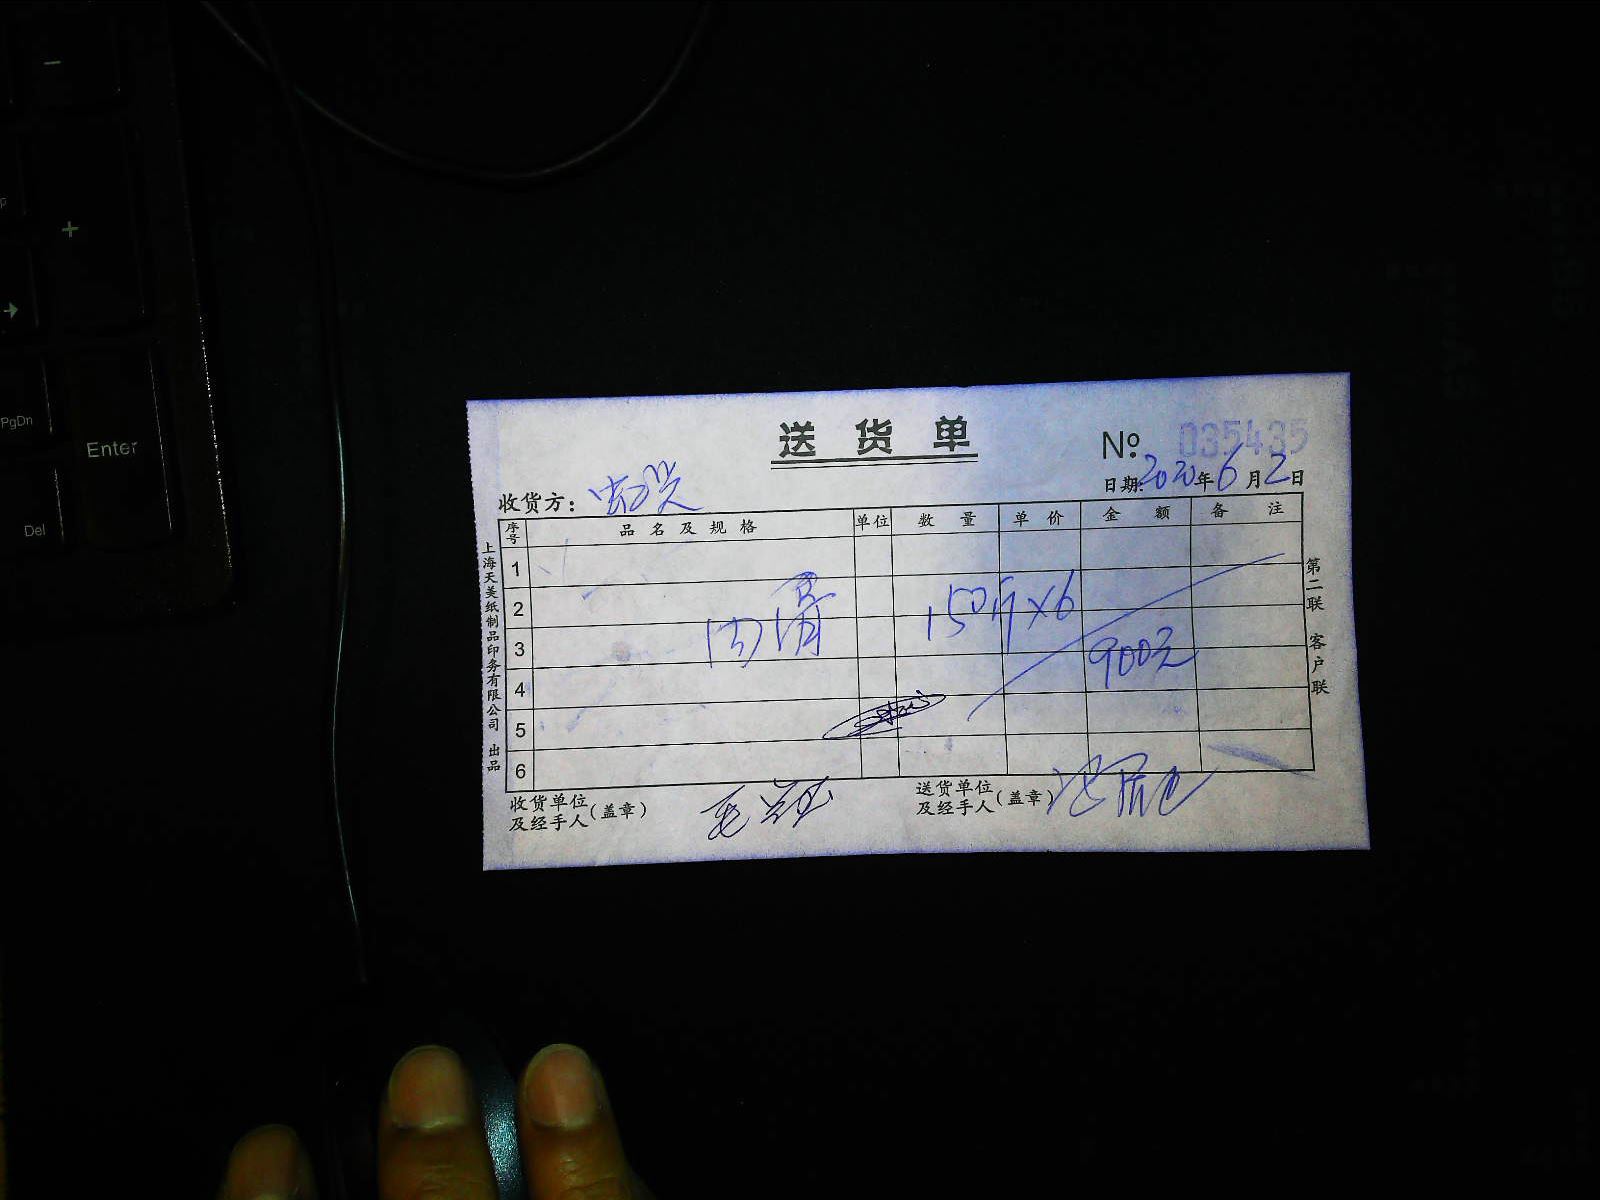 -
+
PgDn
Enter
Del
送货单
№ 035435
日期:2020年6月2日
收货方:
序号 品名及规格 单位 数量 单价 金额 备注
1
2
3
4
5
6
150斤×6
900元
收货单位及经手人(盖章)
送货单位及经手人(盖章)
上海天美纸制品印务有限公司 出品
第二联 客户联